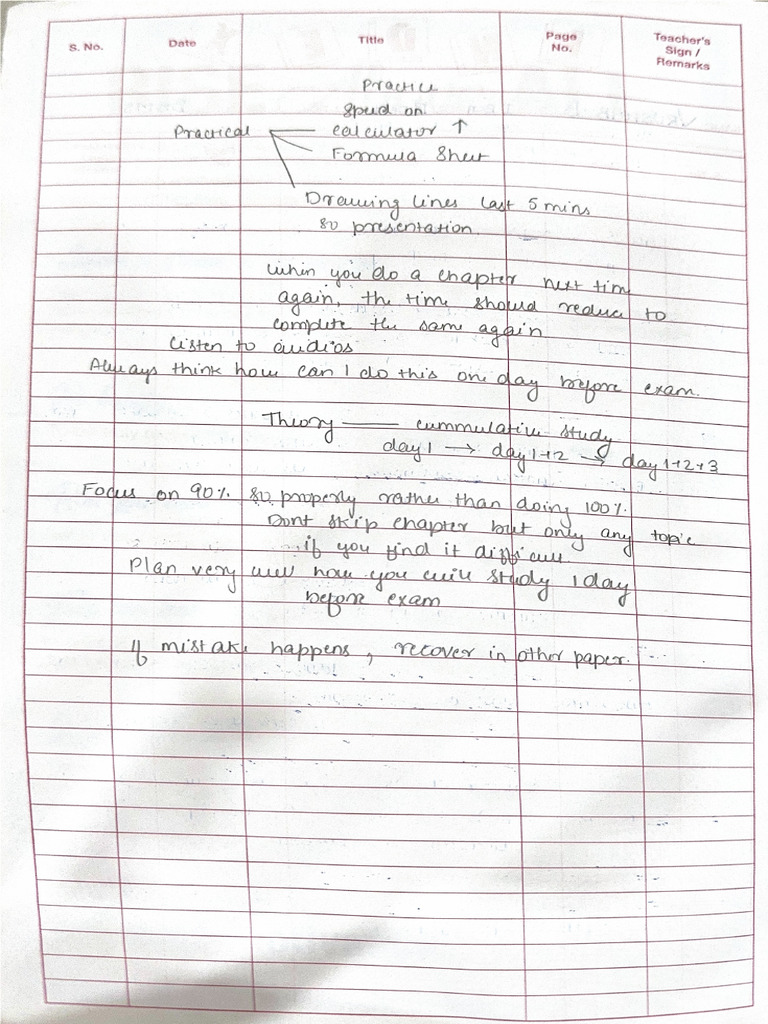 S. No. Date Title Page No. Teacher's Sign / Remarks
Practice
Speed on
Practical calculator ↑
Formula Sheet
Drawing lines last 5 mins
so presentation.
When you do a chapter next time
again, the time should reduce to
complete the same again
Listen to audios
Always think how can I do this one day before exam.
Theory —— cummulative study
day 1 → day 1+2 → day 1+2+3
Focus on 90% so properly rather than doing 100%.
Dont skip chapter but only any topic
if you find it difficult
Plan very well how you will study 1 day
before exam
If mistake happens, recover in other paper.